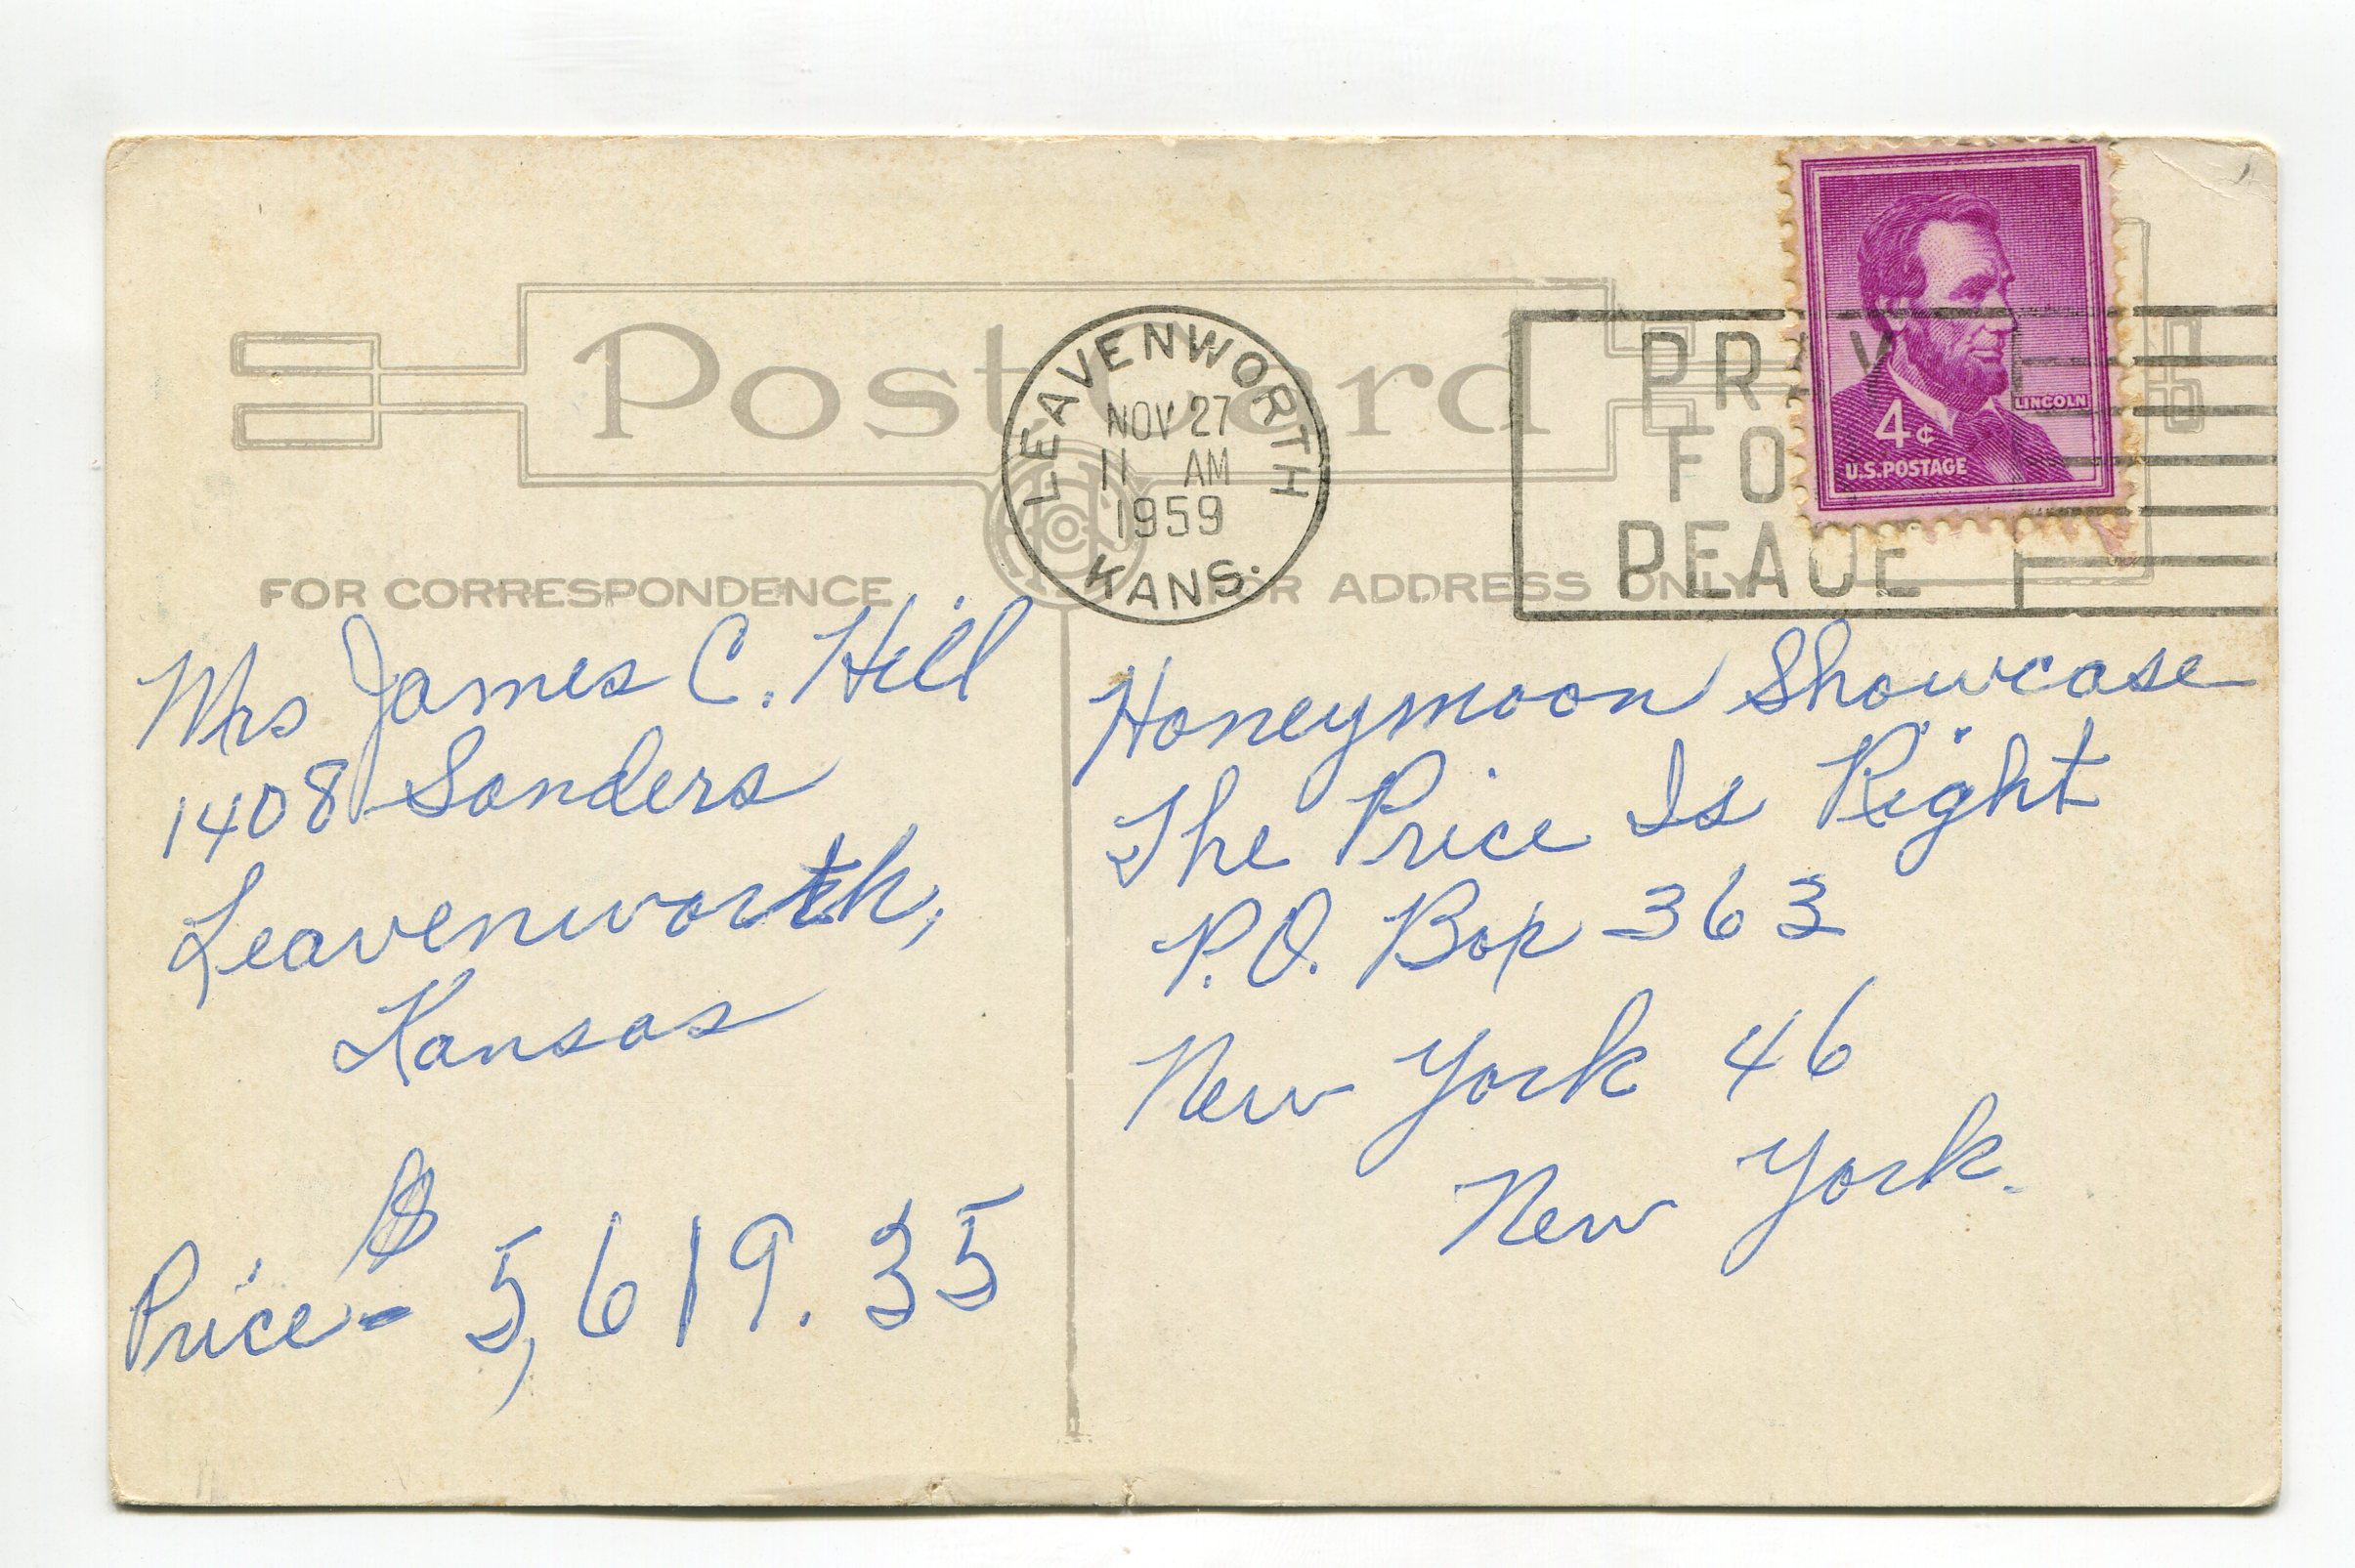 Post Card
LEAVENWORTH
NOV 27
11 AM
1959
KANS.
PRAY
FOR
PEACE
LINCOLN
4¢
U.S. POSTAGE
FOR CORRESPONDENCE
FOR ADDRESS ONLY
Mrs James C. Hill
1408 Sanders
Leavenworth,
Kansas
Price - $5,619.35
Honeymoon Showcase
The Price Is Right
P.O. Box 363
New York 46
New York.